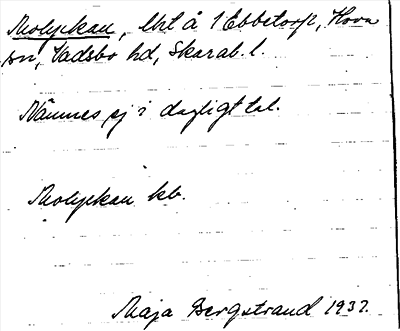 Molyckan, lht å 1 Ebbetorp, Hova
sn, Vadsbo hd, Skarab. l.
Nämnes ej i dagligt tal.
Molyckan kb.
Maja Bergstrand 1937.